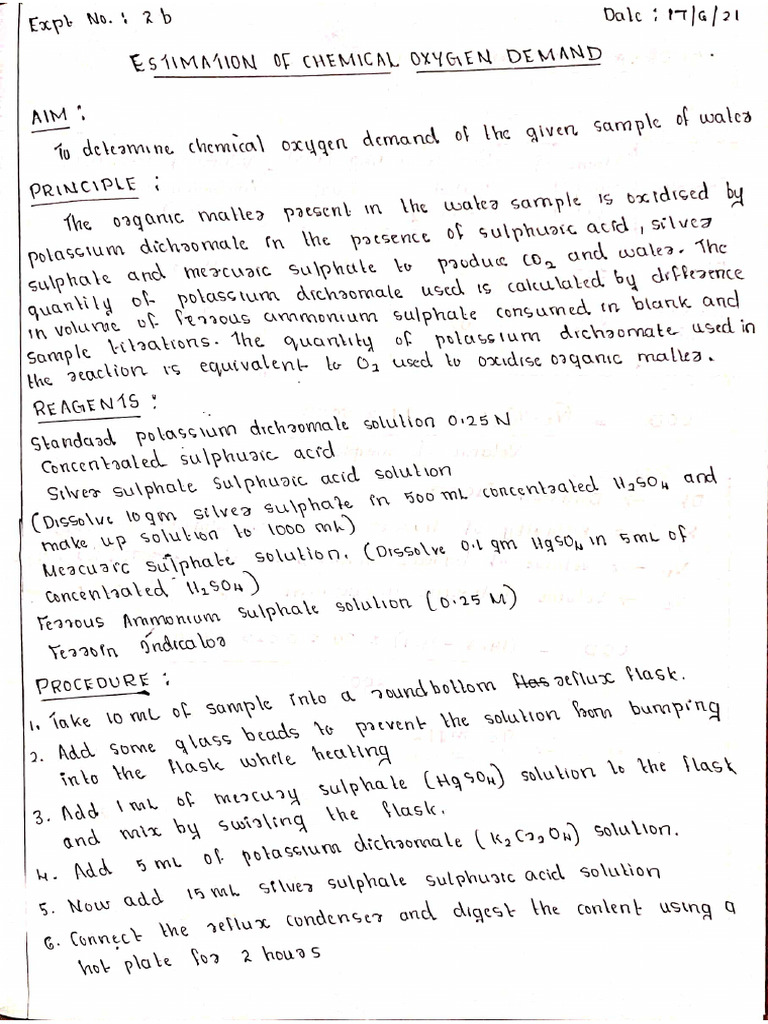 Expt No. : 2 b
Date : 17/6/21
ESTIMATION OF CHEMICAL OXYGEN DEMAND
AIM :
To determine chemical oxygen demand of the given sample of water
PRINCIPLE :
The organic matter present in the water sample is oxidised by
potassium dichromate in the presence of sulphuric acid, silver
sulphate and mercuric sulphate to produce CO2 and water. The
quantity of potassium dichromate used is calculated by difference
in volume of ferrous ammonium sulphate consumed in blank and
sample titrations. The quantity of potassium dichromate used in
the reaction is equivalent to O2 used to oxidise organic matter.
REAGENTS :
Standard potassium dichromate solution 0.25 N
Concentrated sulphuric acid
Silver sulphate sulphuric acid solution
(Dissolve 10 gm silver sulphate in 500 mL concentrated H2SO4 and
make up solution to 1000 mL)
Mercuric sulphate solution. (Dissolve 0.1 gm HgSO4 in 5 mL of
concentrated H2SO4)
Ferrous Ammonium sulphate solution (0.25 M)
Ferroin Indicator
PROCEDURE :
1. Take 10 mL of sample into a round bottom flas reflux flask.
2. Add some glass beads to prevent the solution from bumping
into the flask while heating
3. Add 1 mL of mercury sulphate (HgSO4) solution to the flask
and mix by swirling the flask.
4. Add 5 mL of potassium dichromate (K2Cr2O4) solution.
5. Now add 15 mL silver sulphate sulphuric acid solution
6. Connect the reflux condenser and digest the content using a
hot plate for 2 hours